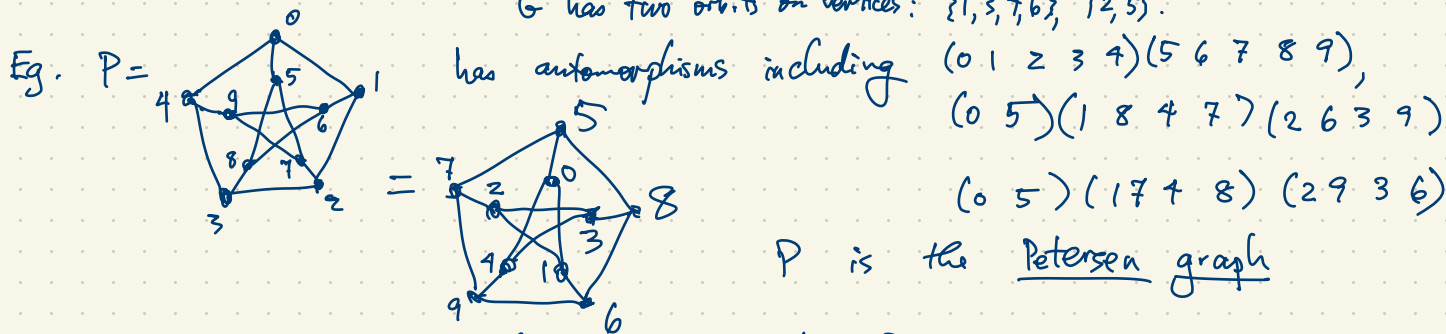 G has two orbits on vertices: {1,3,7,6}, {2,5}.
Eg. P =
0
1
2
3
4
5
6
7
8
9
=
5
8
6
9
7
0
3
1
4
2
has automorphisms including (0 1 2 3 4)(5 6 7 8 9),
(0 5)(1 8 4 7)(2 6 3 9)
(0 5)(1 7 4 8)(2 9 3 6)
P is the Petersen graph